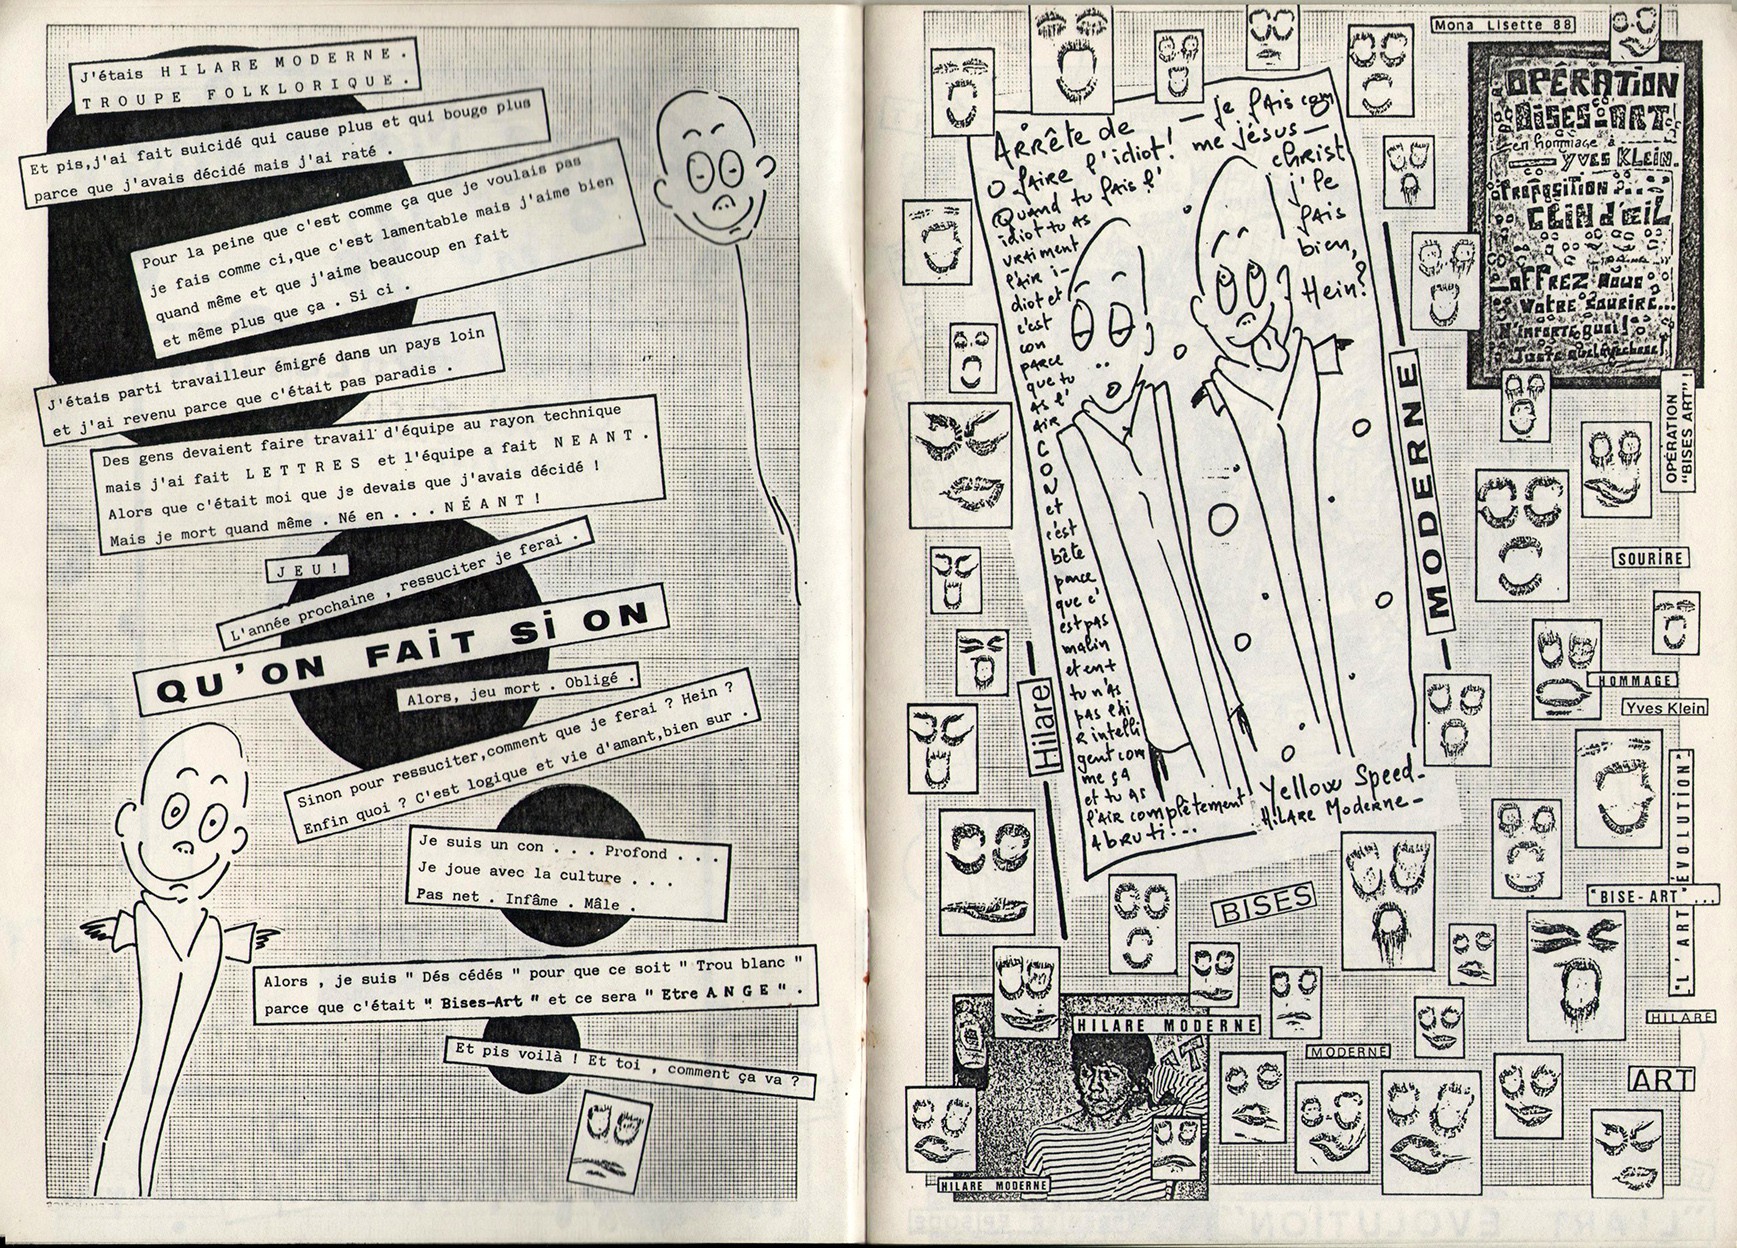 J'étais HILARE MODERNE.
TROUPE FOLKLORIQUE.
Et pis,j'ai fait suicidé qui cause plus et qui bouge plus
parce que j'avais décidé mais j'ai raté .
Pour la peine que c'est comme ça que je voulais pas
je fais comme ci,que c'est lamentable mais j'aime bien
quand même et que j'aime beaucoup en fait
et même plus que ça . Si ci .
J'étais parti travailleur émigré dans un pays loin
et j'ai revenu parce que c'était pas paradis .
Des gens devaient faire travail d'équipe au rayon technique
mais j'ai fait LETTRES et l'équipe a fait NEANT.
Alors que c'était moi que je devais que j'avais décidé !
Mais je mort quand même . Né en ... NÉANT!
JEU!
L'année prochaine , ressuciter je ferai .
QU'ON FAiT Si ON
Alors, jeu mort . Obligé .
Sinon pour ressuciter,comment que je ferai ? Hein ?
Enfin quoi ? C'est logique et vie d'amant,bien sur .
Je suis un con . . . Profond . . .
Je joue avec la culture . . .
Pas net . Infâme . Mâle .
Alors , je suis " Dés cédés " pour que ce soit " Trou blanc "
parce que c'était " Bises-Art " et ce sera " Etre ANGE " .
Et pis voilà ! Et toi , comment ça va ?
Mona Lisette 88
ARRête de
faire l'idiot!
Quand tu fais l'
idiot tu as
vraiment
l'air i-
diot et
c'est
con
parce
que tu
as l'
AIR
C
O
N
et
c'est
bête
parce
que c'
est pas
malin
et en +
tu n'as
pas l'ai
R intelli
gent com
me ça
et tu as
l'air complètement
Abruti!...
— je fais com
me jésus—
christ
j'le
fais
bien,
Hein?
Yellow Speed-
Hilare Moderne-
Hilare
MODERNE
OPÉRATION
BISES-ART
en hommage à
YVES KLEIN.
PROPOSITION...
CLIN d'ŒIL
OFFREZ NOUS
VOTRE SOURIRE...
N'IMPORTE QUOI!
Juste quelque chose!
OPÉRATION
"BISES ART"!
SOURIRE
HOMMAGE
Yves Klein
"L'ART ÉVOLUTION"
"BISE-ART"...
HILARE
BISES
HILARE MODERNE
MODERNE
ART
HILARE MODERNE